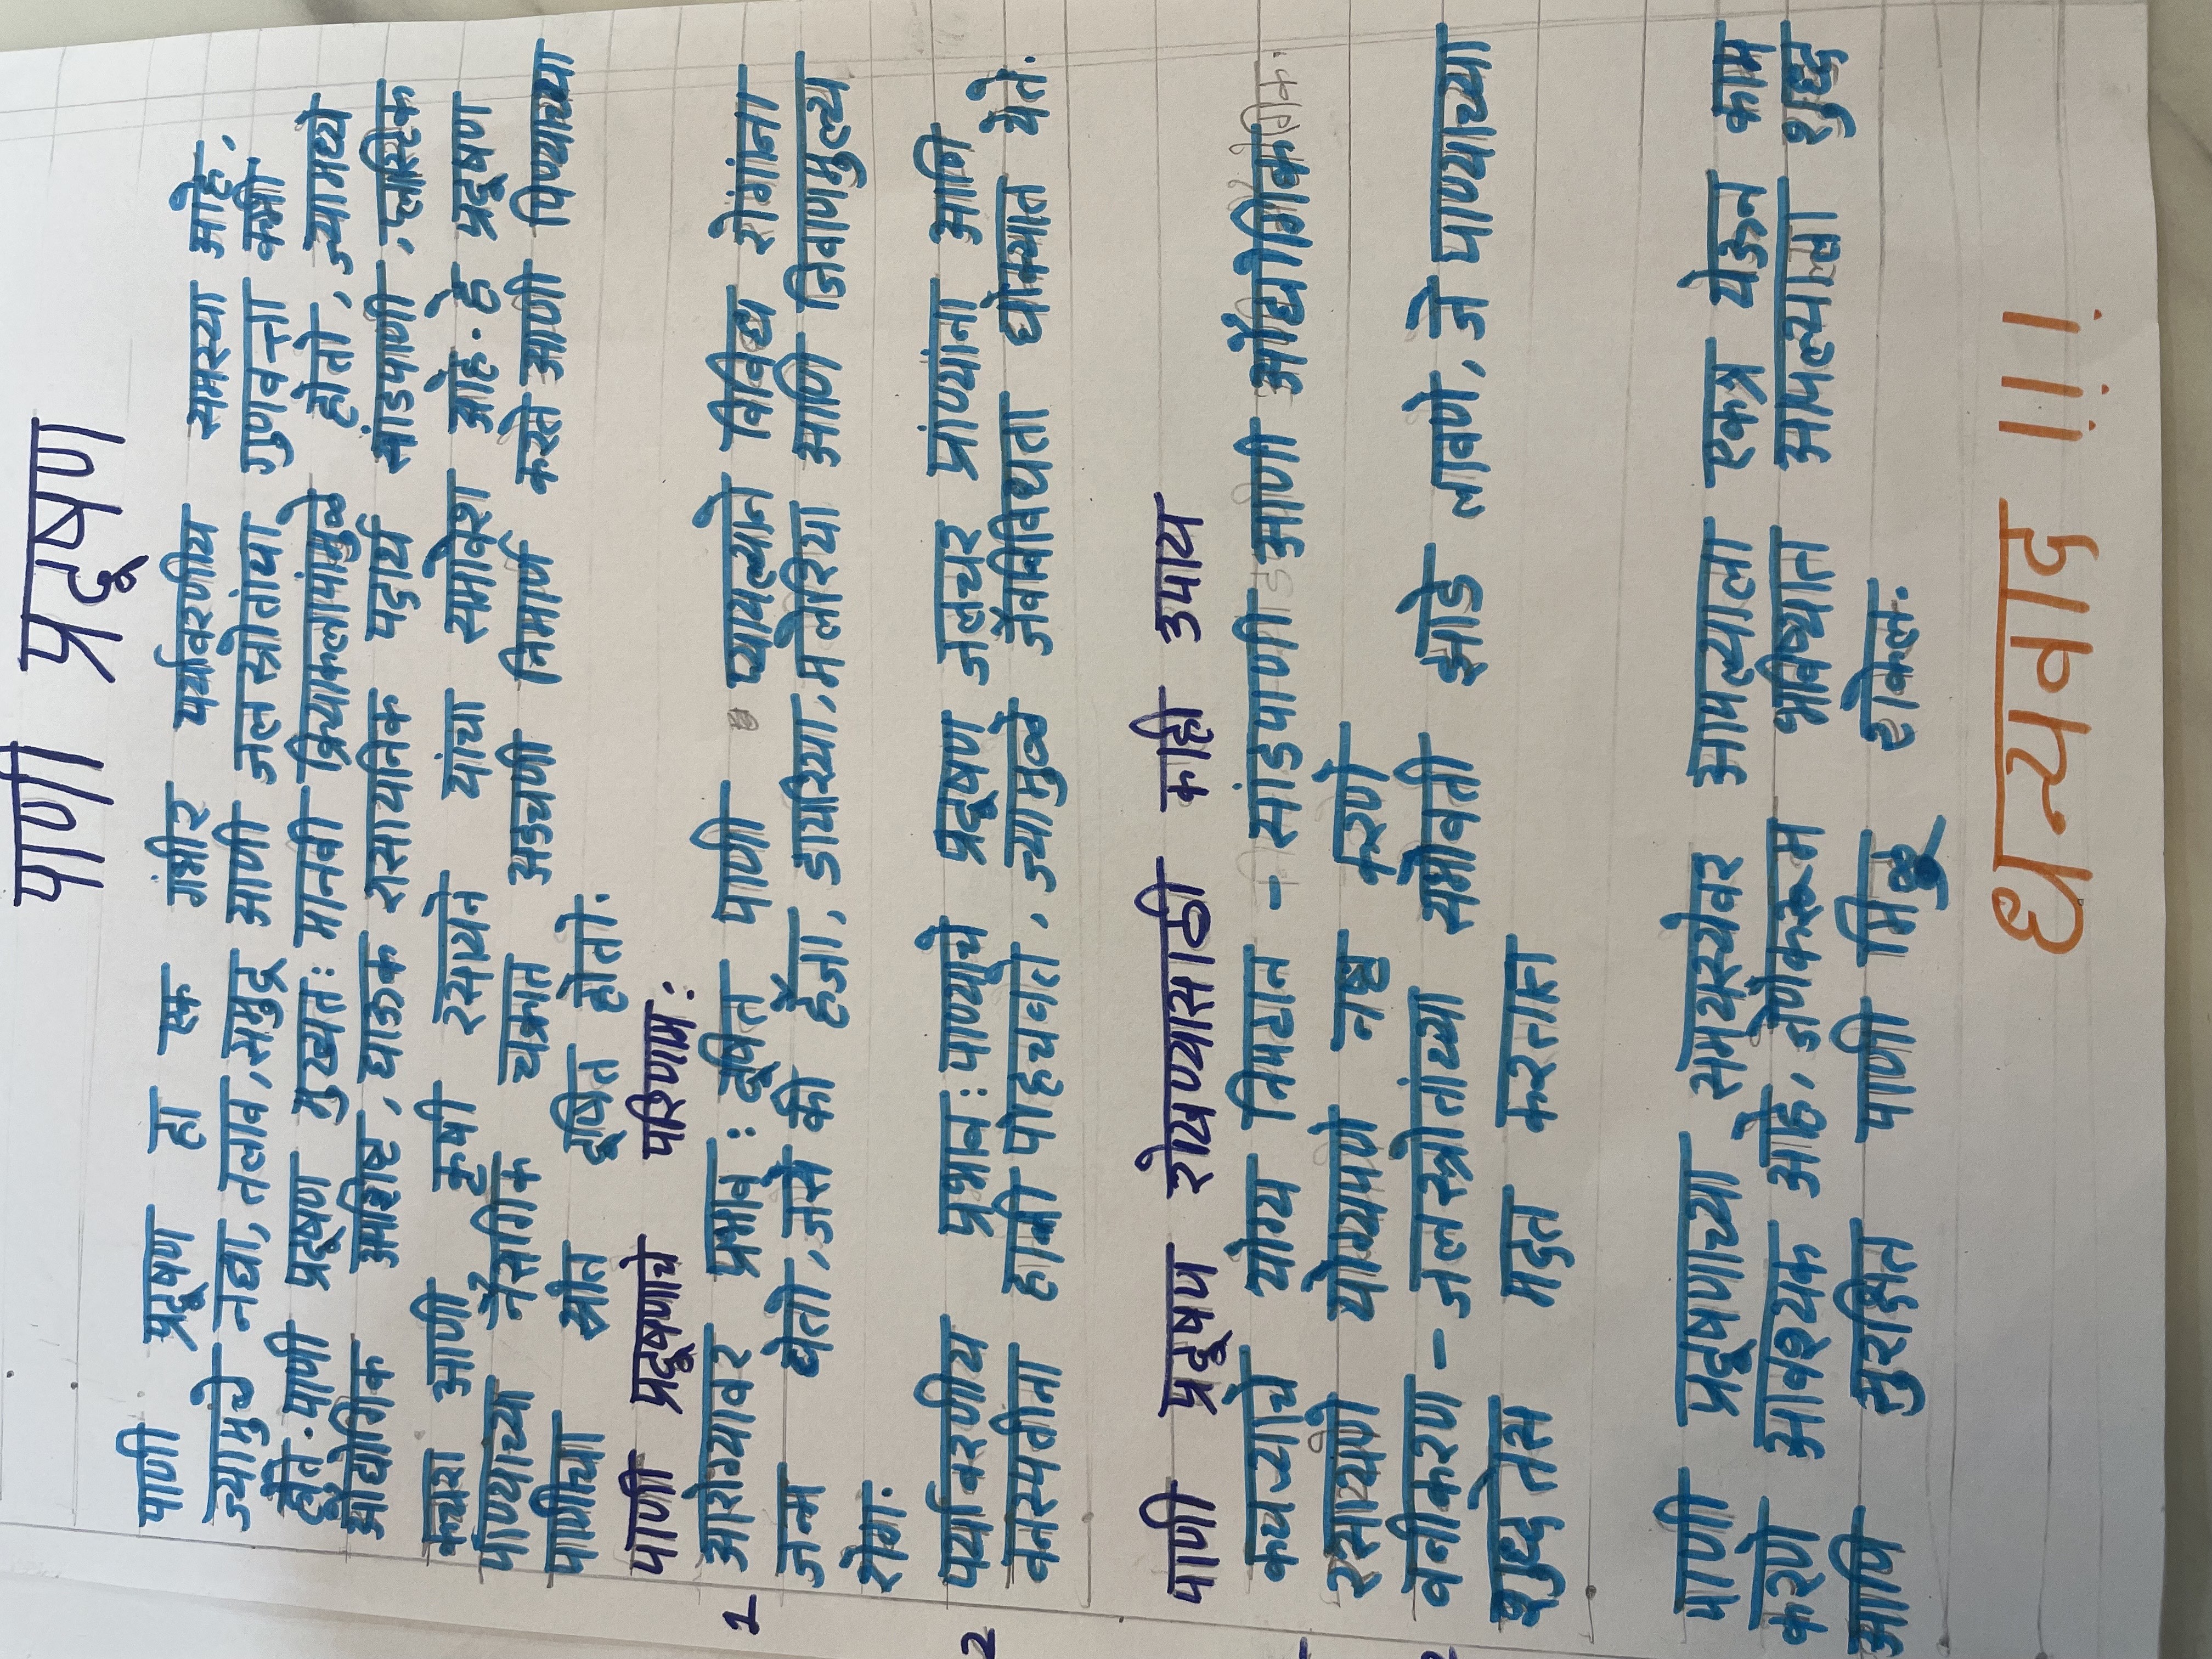 पाणी प्रदूषण
पाणी प्रदूषण हा एक गंभीर पर्यावरणीय समस्या आहे,
ज्यामुळे नद्या, तलाव, समुद्र आणी जल स्त्रोतांचा गुणवत्ता कमी
होते. पाणी प्रदूषण मुख्यत: मानवी क्रियाकलापांमुळे होतो, ज्यामध्ये
औद्योगिक अपशिष्ट, घाऊक रासायनिक पदार्थ सांडपाणी, प्लास्टिक
कचरा आणी कृषी रसायने यांचा समावेश आहे. हे प्रदूषण
पाण्याच्या नैसर्गिक चक्रात अडचणी निमार्ण करते आणी पिण्याच्या
पाणीचा स्रोत दूषित होतो.
पाणी प्रदूषणाचे परिणाम:
1 आरोग्यावर प्रभाव: दूषित पाणी प्यायल्याने विविध रोगांना
जन्म घेतो, जसे की हैजा, डायरिया, मलेरिया आणि जिवाणमुल्य
रोग.
2 पर्यावरणीय प्रभाव: पाण्याचे प्रदूषण जलचर प्रांण्यांना आणि
वनस्पतीना हानी पोहचवते, ज्यामुळे जैवविविधता धोक्यात येते.
पाणी प्रदूषण रोखण्यासाठी काही उपाय
कचऱ्याचे योग्य निपटान - सांडपाणी आणी औद्योगिक
रसायणे योग्यपणे नष्ट करणे
वनीकरण - जलस्त्रोतांच्या सभोवती झाडे लावणे, जे पाण्याच्या
शुद्धतेस मदत करतात
पाणी प्रदूषणाच्या समयस्येवर आपल्याला एकत्र येऊन काम
करणे आवश्यक आहे, जेणेकरूम भविष्यात आपल्याला शुद्ध
आणि सुरक्षित पाणी मिळू शकेल.
धन्यवाद !!!